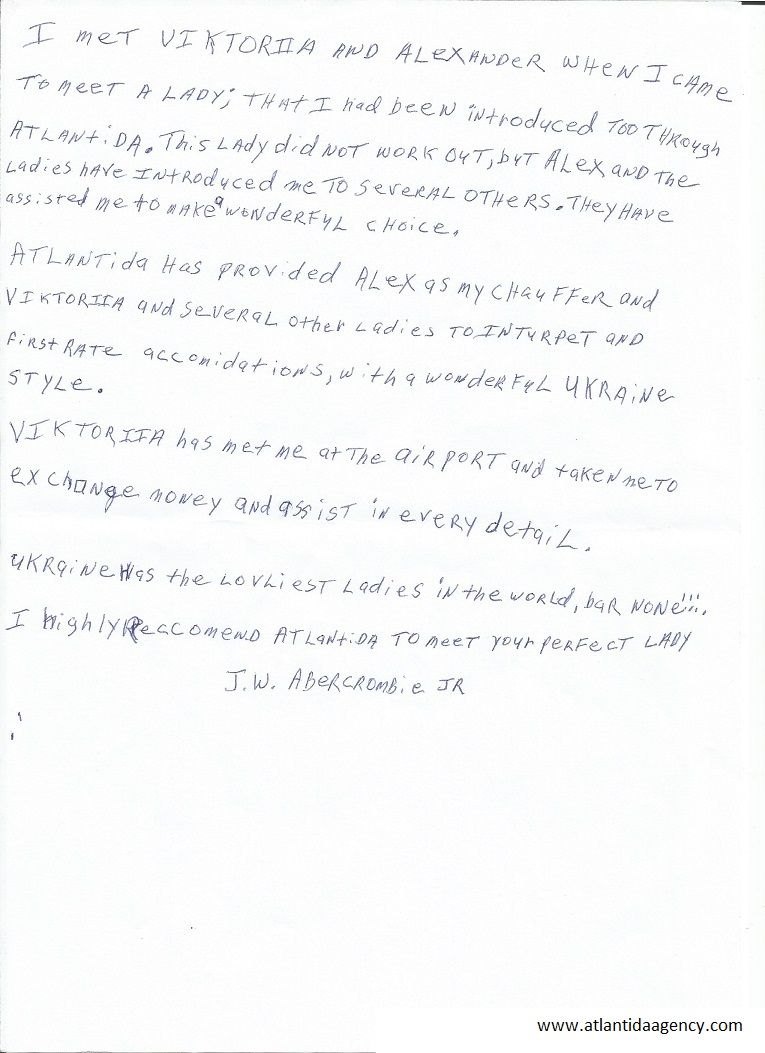 I MET VIKTORIIA AND ALEXANDER WHEN I CAME
TO MEET A LADY; THAT I had been introduced TOO THROUGH
ATLANTIDA. This LADY did NOT WORK OUT, but ALEX AND The
Ladies HAVE INTRODUCED me TO SEVERAL OTHERS. THEY HAVE
assisted me to MAKE a WONDERFUL CHOICE.
ATLANTIDA HAS PROVIDED ALEX as MY CHAUFFER and
VIKTORIIA and SEVERAL other Ladies TO INTURPET AND
FIRST RATE accomidations, with a WONDERFUL UKRAINE
STYLE.
VIKTORIIA has met me at The AIRPORT and taken me TO
exchange money and assist in every detail.
UKRAINE Has the LOVLIEST LADIES IN the WORLD, bar NONE!!!.
I highly Reaccomend ATLANTIDA TO meet your perfect LADY
J.W. Abercrombie JR
www.atlantidaagency.com